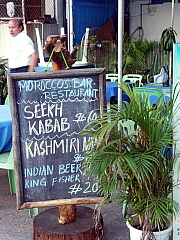 MOROCCOS BAR
RESTAURANT
SEEKH
KABAB
KASHMIRI
INDIAN BEER
KING FISHER